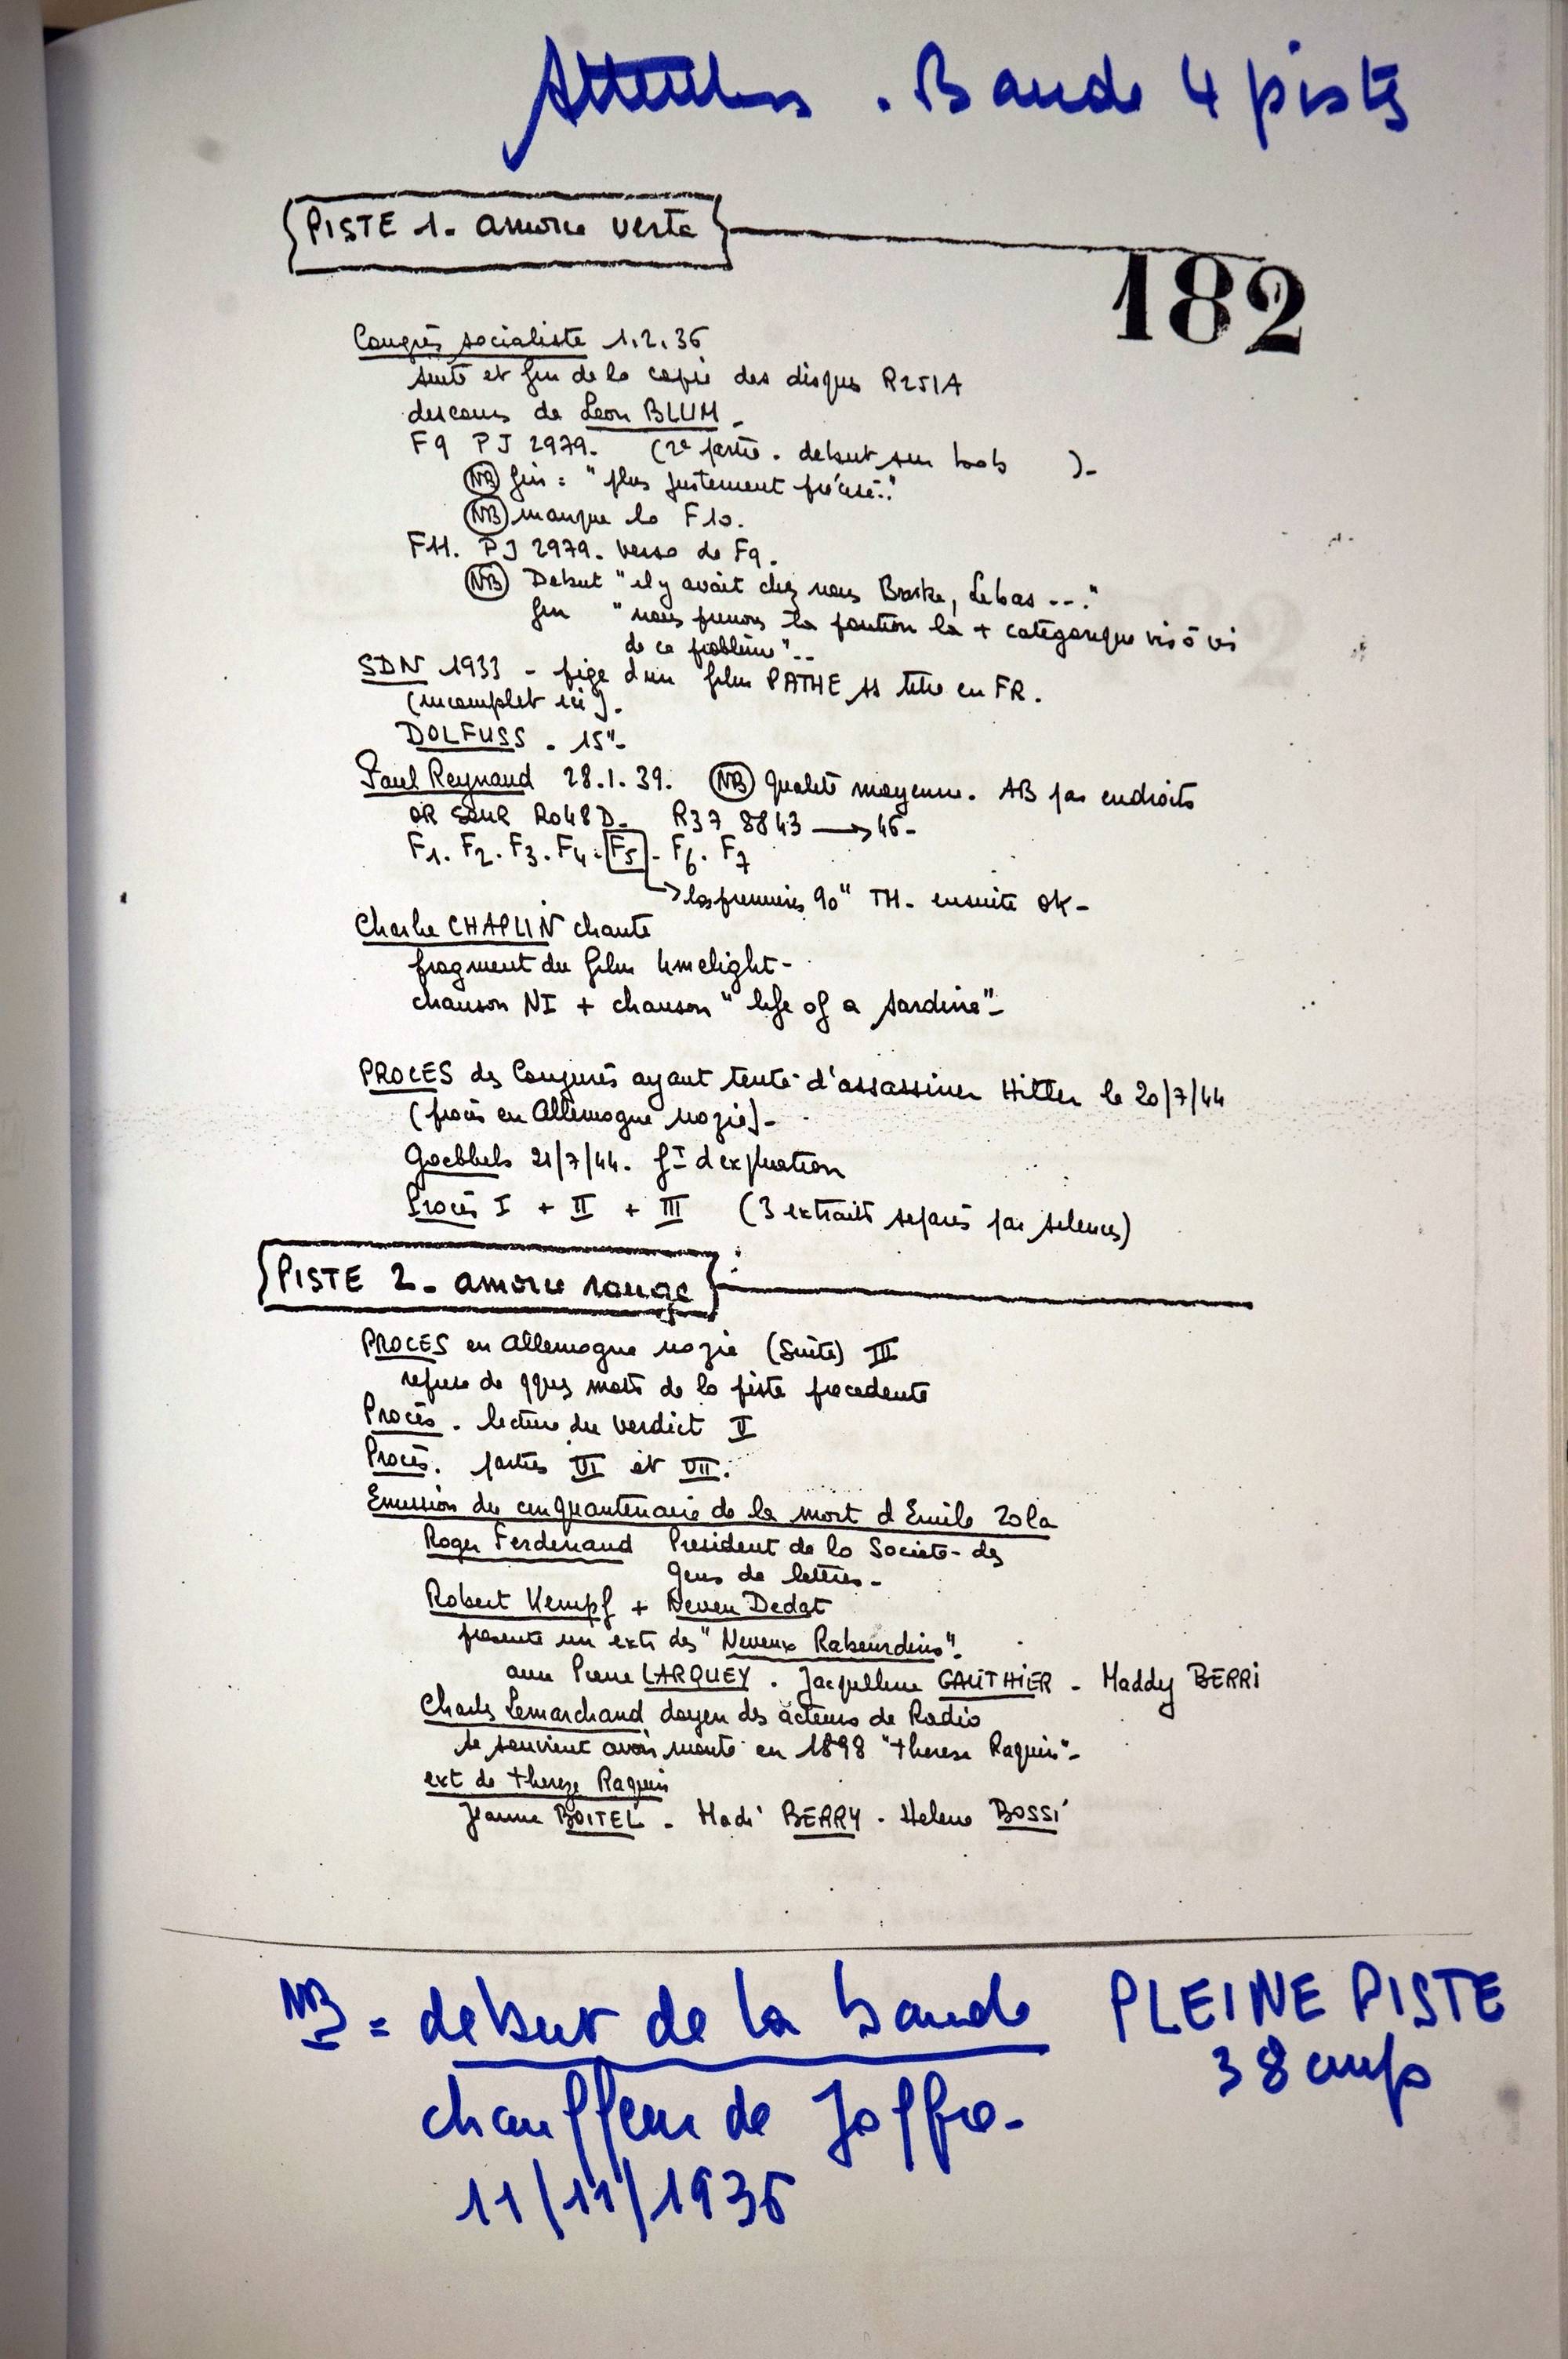 Attention . Bande 4 pistes
PISTE 1. amorce verte
182
Congrès socialiste 1.2.36
suite et fin de la copie des disques R251A
discours de Leon BLUM -
F9 PJ 2979. (2e partie . debut sur bob ) -
NB fin : " plus justement précisé.."
NB manque le F10.
F11. PJ 2979. verso de F9.
NB Debut " il y avait chez nous Bracke, Lebas ---."
fin " nous prenons la position la + categorique vis à vis
de ce problème"..
SDN 1933 - pige d'un film PATHE ss titre en FR.
(incomplet ici).
DOLFUSS . 15"-
Paul Reynaud 28.1.39. NB Qualité moyenne. AB par endroits
OR SOUR R048D. R37 8843 → 46-
F1. F2. F3. F4. F5 - F6. F7
→ les premières 90" TH- ensuite OK-
Charlie CHAPLIN chante
fragment du film limelight-
chanson NI + chanson " life of a sardine"-
PROCES des Conjurés ayant tenté d'assassiner Hitler le 20/7/44
(procès en Allemagne nazie)-
Goebbels 21/7/44.
Procès I + II + III (3 extraits separés par silences)
PISTE 2. amorce rouge
PROCES en Allemagne nazie (Suite) III
reprise de qques mots de la piste precedente
Procès . lecture du verdict V
Procès. parties VI et VII.
Emission du cinquantenaire de la mort d Emile Zola
Roger Ferdinand President de la Societe des
Gens de lettres -
Robert Kempf + Deven Dedat
presente un ext. des " Neveux Rabourdins".
avec Pierre LARQUEY . Jacqueline GAUTHIER - Maddy BERRI
Charles Lemarchand doyen des acteurs de Radio
se souvient avoir monté en 1898 "Therese Raquin"-
ext de Therese Raquin
Jeanne BOITEL . Madi BERRY . Helene BOSSI
NB = debut de la bande PLEINE PISTE
38 cm/s
chauffeur de Joffre-
11/11/1936